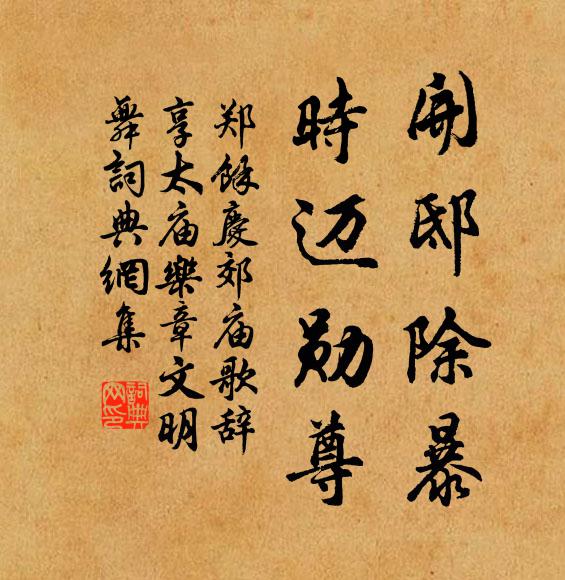 開邸除暴
時迈勋尊
郑馀慶郊庙歌辞
享太庙樂章文明
舞詞典網集
詞典网印